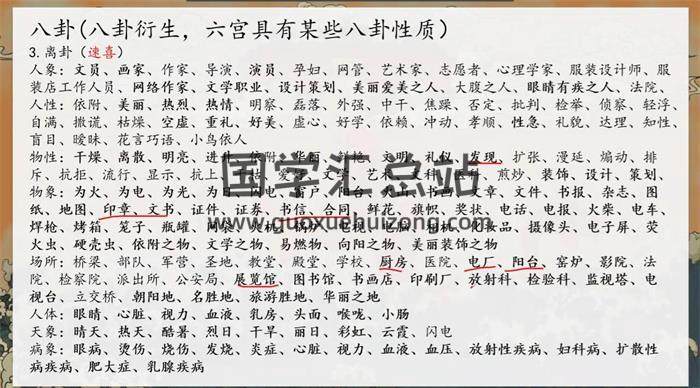 八卦(八卦衍生，六宫具有某些八卦性质)
3.离卦（速喜）
人象：文员、画家、作家、导演、演员、孕妇、网管、艺术家、志愿者、心理学家、服装设计师、服
装店工作人员、网络作家、文学职业、设计策划、美丽爱美之人、大腹之人、眼睛有疾之人、法院、
人性：依附、美丽、热烈、热情、明察、磊落、外强、中干、焦躁、否定、批判、检举、侦察、轻浮、
自满、撒谎、枯燥、空虚、重礼、好美、虚心、好学、依赖、冲动、孝顺、性急、礼貌、达理、知性、
盲目、暧昧、花言巧语、小鸟依人
物性：干燥、离散、明亮、进升、依附、华丽、鲜艳、文明、礼仪、发现、扩张、漫延、煽动、排
斥、抗拒、流行、显示、抗上、干枯、爱美、文学、艺术、文科、医科、煎炒、装饰、设计、策划、
物象：为火、为电、为光、为日、闪电、窗户、阳台、火山、书画、文章、文件、书报、杂志、图
纸、地图、印章、文书、证件、证券、书信、合同、鲜花、旗帜、奖状、电话、电报、火柴、电车、
焊枪、烤箱、笼子、瓶罐、
化妆品、摄像头、电子屏、萤
火虫、硬壳虫、依附之物、文学之物、易燃物、向阳之物、美丽装饰之物
场所：桥梁、部队、军营、圣地、教堂、殿堂、学校、厨房、医院、电厂、阳台、窑炉、影院、法
院、检察院、派出所、公安局、展览馆、图书馆、书画店、印刷厂、放射科、检验科、监视塔、电
视台、立交桥、朝阳地、名胜地、旅游胜地、华丽之地
人体：眼睛、心脏、视力、血液、乳房、头面、喉咙、小肠
天象：晴天、热天、酷暑、烈日、干旱、丽日、彩虹、云霞、闪电
病象：眼病、烫伤、烧伤、发烧、炎症、心脏、视力、血液、血压、放射性疾病、妇科病、扩散性
病疾病、肥大症、乳腺疾病
国学汇总站
www.guoxuehuizong.com